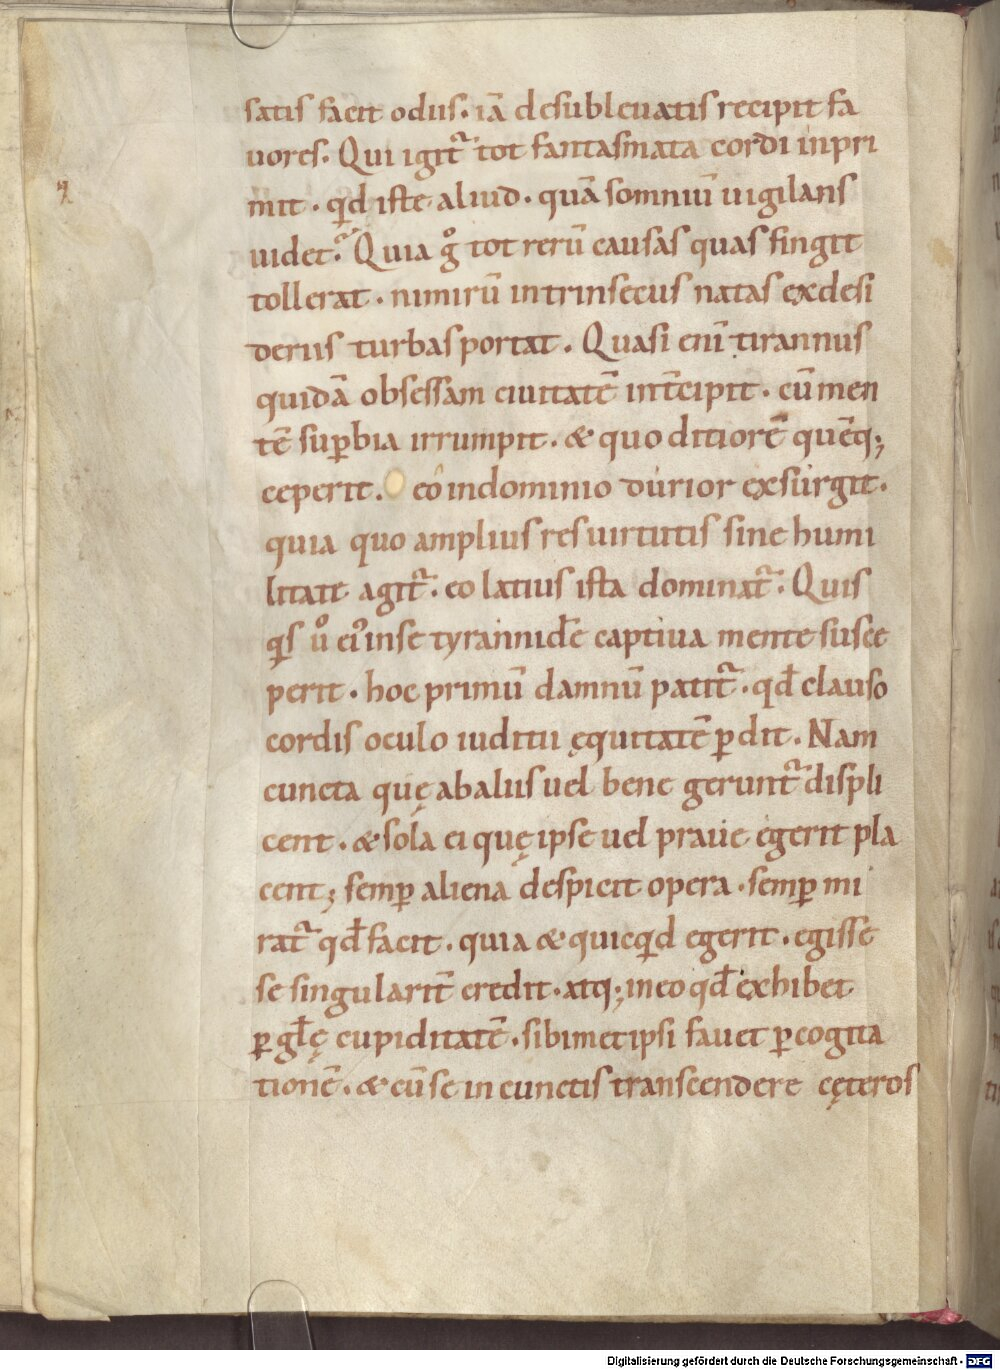 satis facit odiis. iā desublevatis recipit fa
uores. Qui igit᷑ tot fantasmata cordi inpri
mit. qͥd iste aliud. quā somniū uigilans
uidet᷑. Quia gͦ tot rerū causas quas fingit
tollerat. nimirū intrinsecus natas exdesi
deriis turbas portat. Quasi eni̅ tirannus
quidā obsessam ciuitatē int̅cipit. cū men
tē suꝑbia irrumpit. & quo ditiorē quēq;
ceperit. eo indominio durior exsurgit.
quia quo amplius res uirtutis sine humi
litate agit᷑. eo latius ista dominat᷑. Quis
qͥs uͦ ei᷒ inse tyrannidē captiua mente susce
perit. hoc primū damnū patit᷑. qd̅ clauso
cordis oculo iuditii ęquitatē ꝑdit. Nam
cuncta quę abaliis uel bene gerunt᷑ displi
cent. & sola ei quę ipse uel praue egerit pla
cent; semꝑ aliena despicit opera. semꝑ mi
rat᷑ qd̅ facit. quia & quicqͥd egerit. egisse
se singularit̅ credit. atq; ineo qd̅ exhibet
ꝑ gl̅ę cupiditatē. sibimetipsi fauet ꝑ cogita
tionē. & cū se in cunctis transcendere cęteros
Digitalisierung gefördert durch die Deutsche Forschungsgemeinschaft - DFG